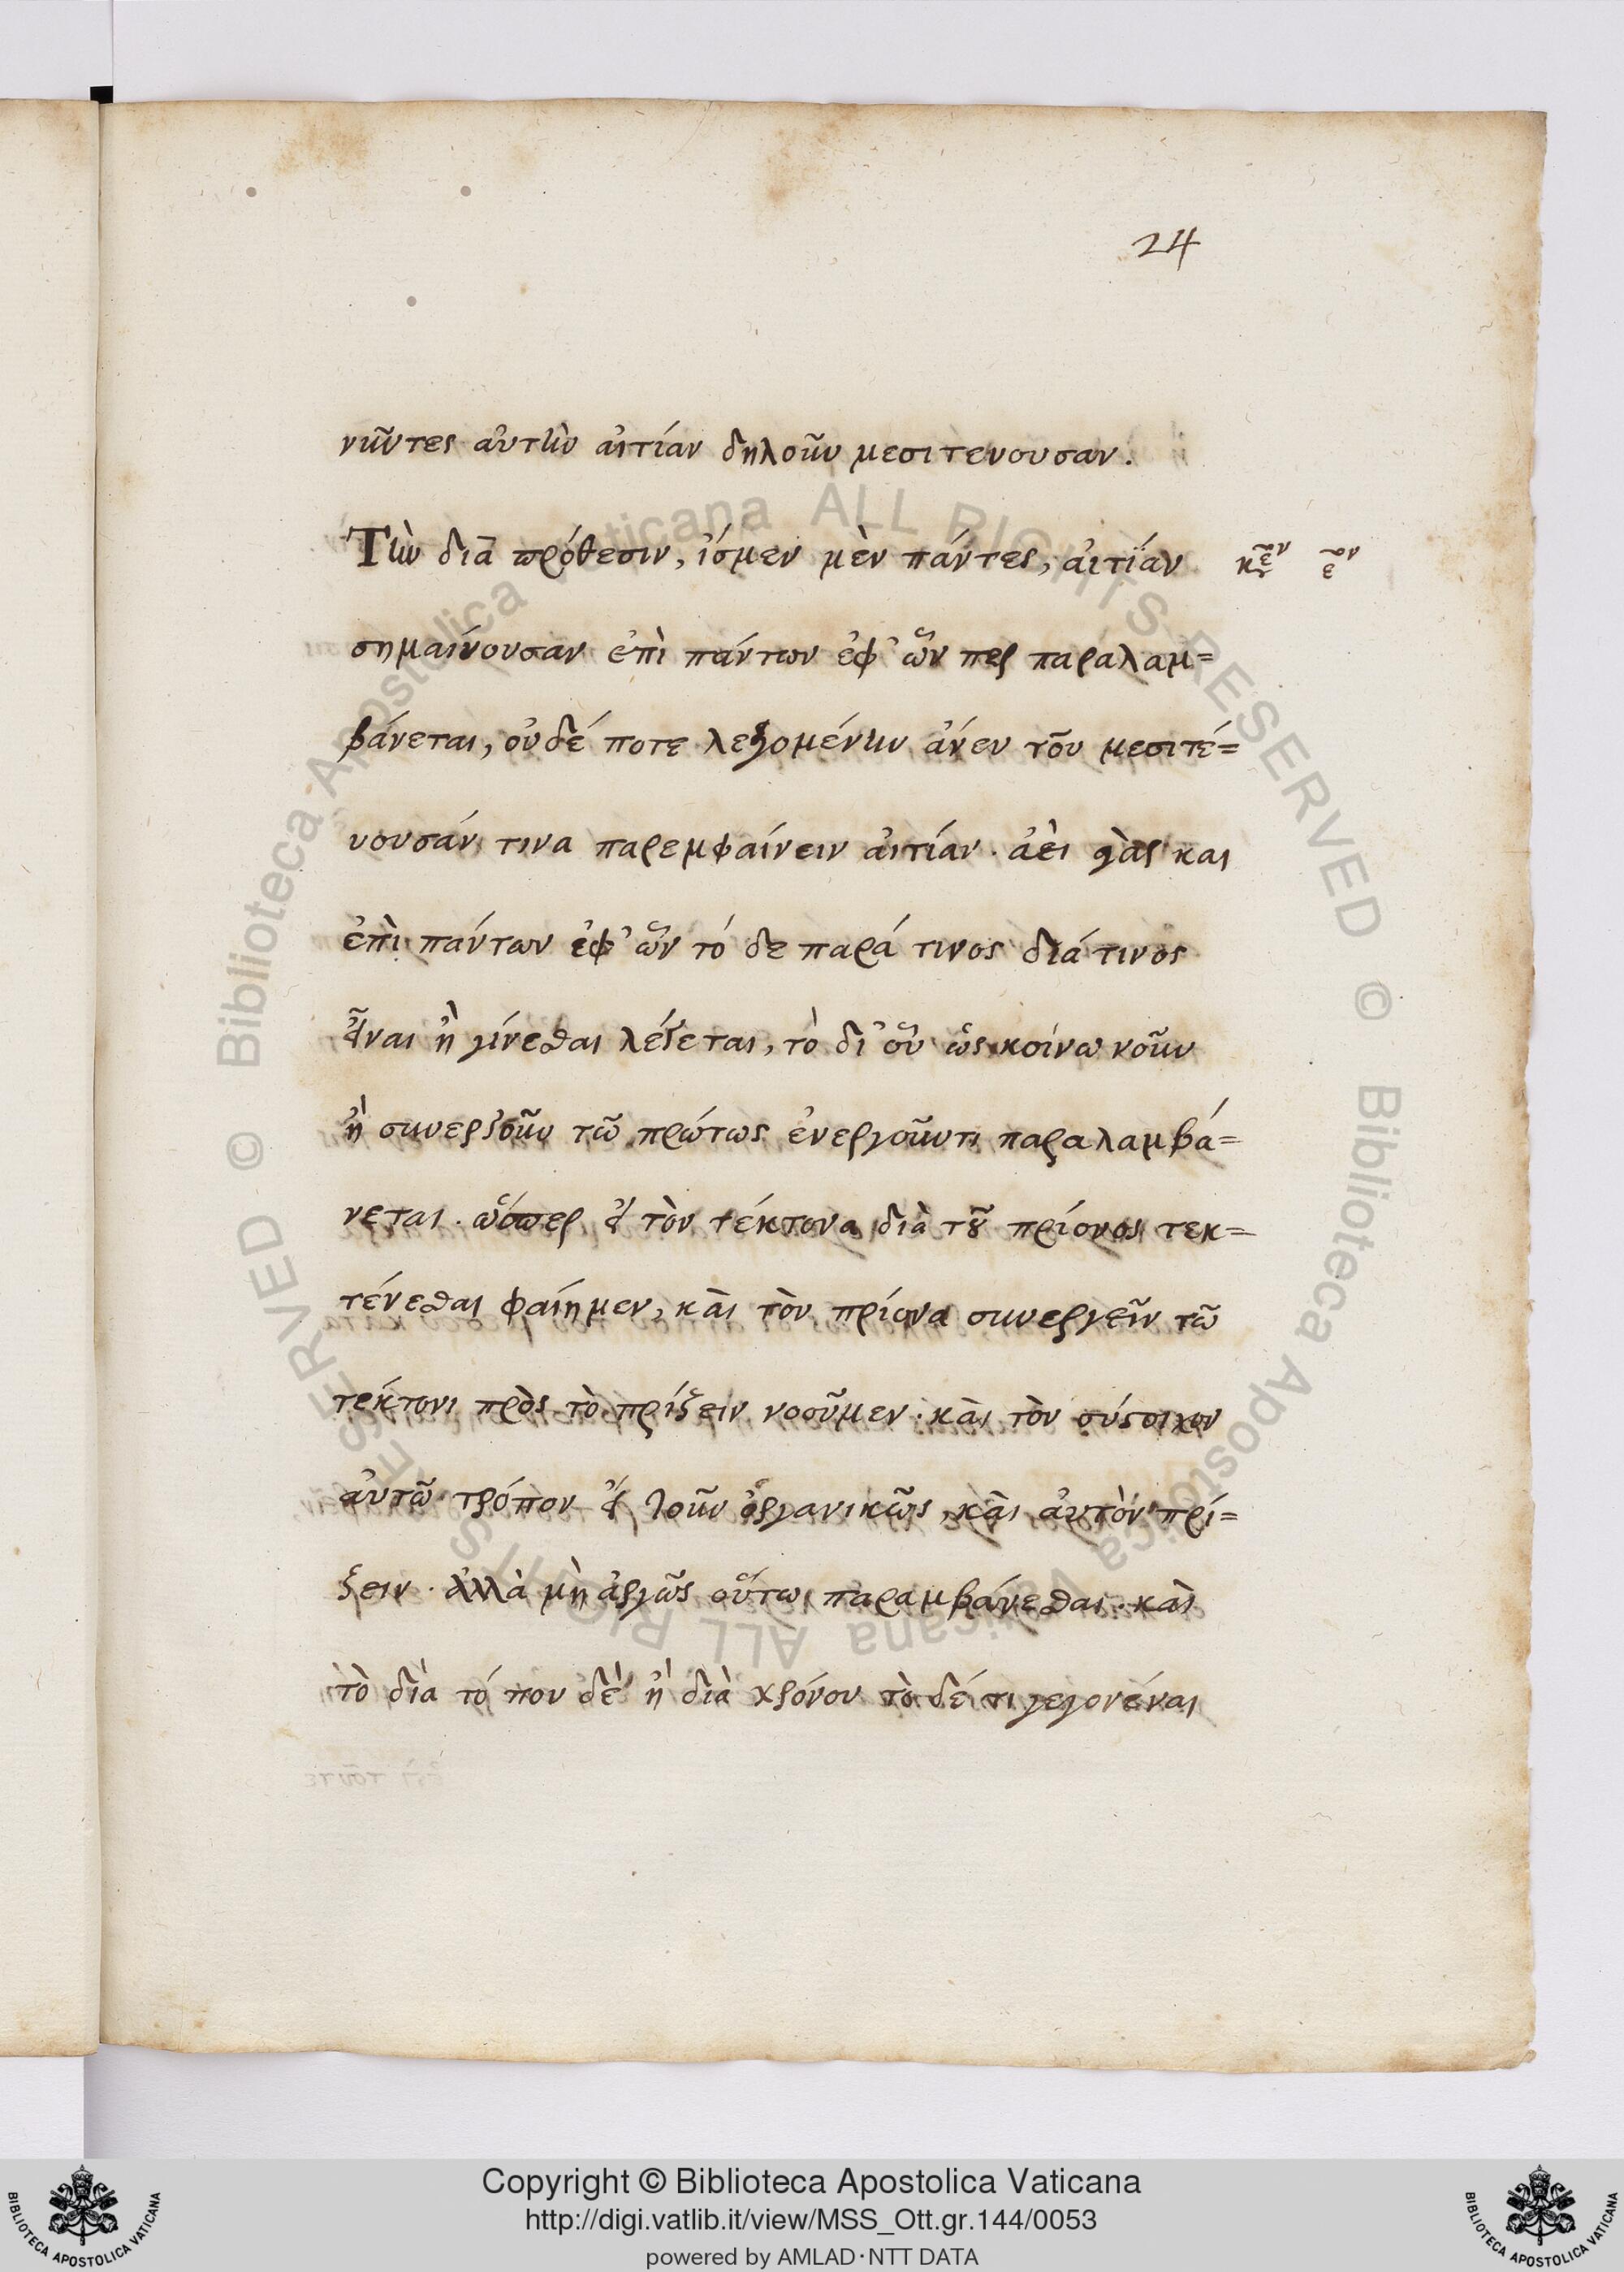 24
νῶντες αὐτὴν αἰτίαν δηλοῦν μεσιτεύουσαν.
Τὴν διὰ πρόθεσιν, ἴσμεν μὲν πάντες, αἰτίαν
σημαίνουσαν ἐπὶ πάντων ἐφ' ὧν περ παραλαμ=
βάνεται, οὐδέ ποτε λεγομένην ἄνευ τοῦ μεσιτέ=
υουσάν τινα παρεμφαίνειν αἰτίαν. ἀεὶ γὰρ καὶ
ἐπὶ πάντων ἐφ' ὧν τό δε παρά τινος διά τινος
εἶναι ἢ γίνεσθαι λέγεται, τὸ δι' οὗ ὡς κοίνω νοῦν
ἢ συνεργοῦν τῶ πρώτως ἐνεργοῦντι παραλαμβά=
νεται. ὥσπερ εἰ τὸν τέκτονα διὰ τοῦ πρίονος τεκ=
τένεσθαι φαίημεν, καὶ τὸν πρίονα συνεργεῖν τῶ
τέκτονι πρὸς τὸ πρίζειν νοοῦμεν. καὶ τὸν σύστοιχον
αὐτῶ τρόπον εἰ γοῦν ὀργανικῶς, καὶ αὐτὸν πρί=
ζειν. ἀλλὰ μὴ ἀργῶς οὕτω παραμβάνεσθαι. καὶ
τὸ διὰ τόπου δὲ ἢ διὰ χρόνου τὸ δέ τι γεγονέναι
Copyright © Biblioteca Apostolica Vaticana
http://digi.vatlib.it/view/MSS_Ott.gr.144/0053
powered by AMLAD·NTT DATA